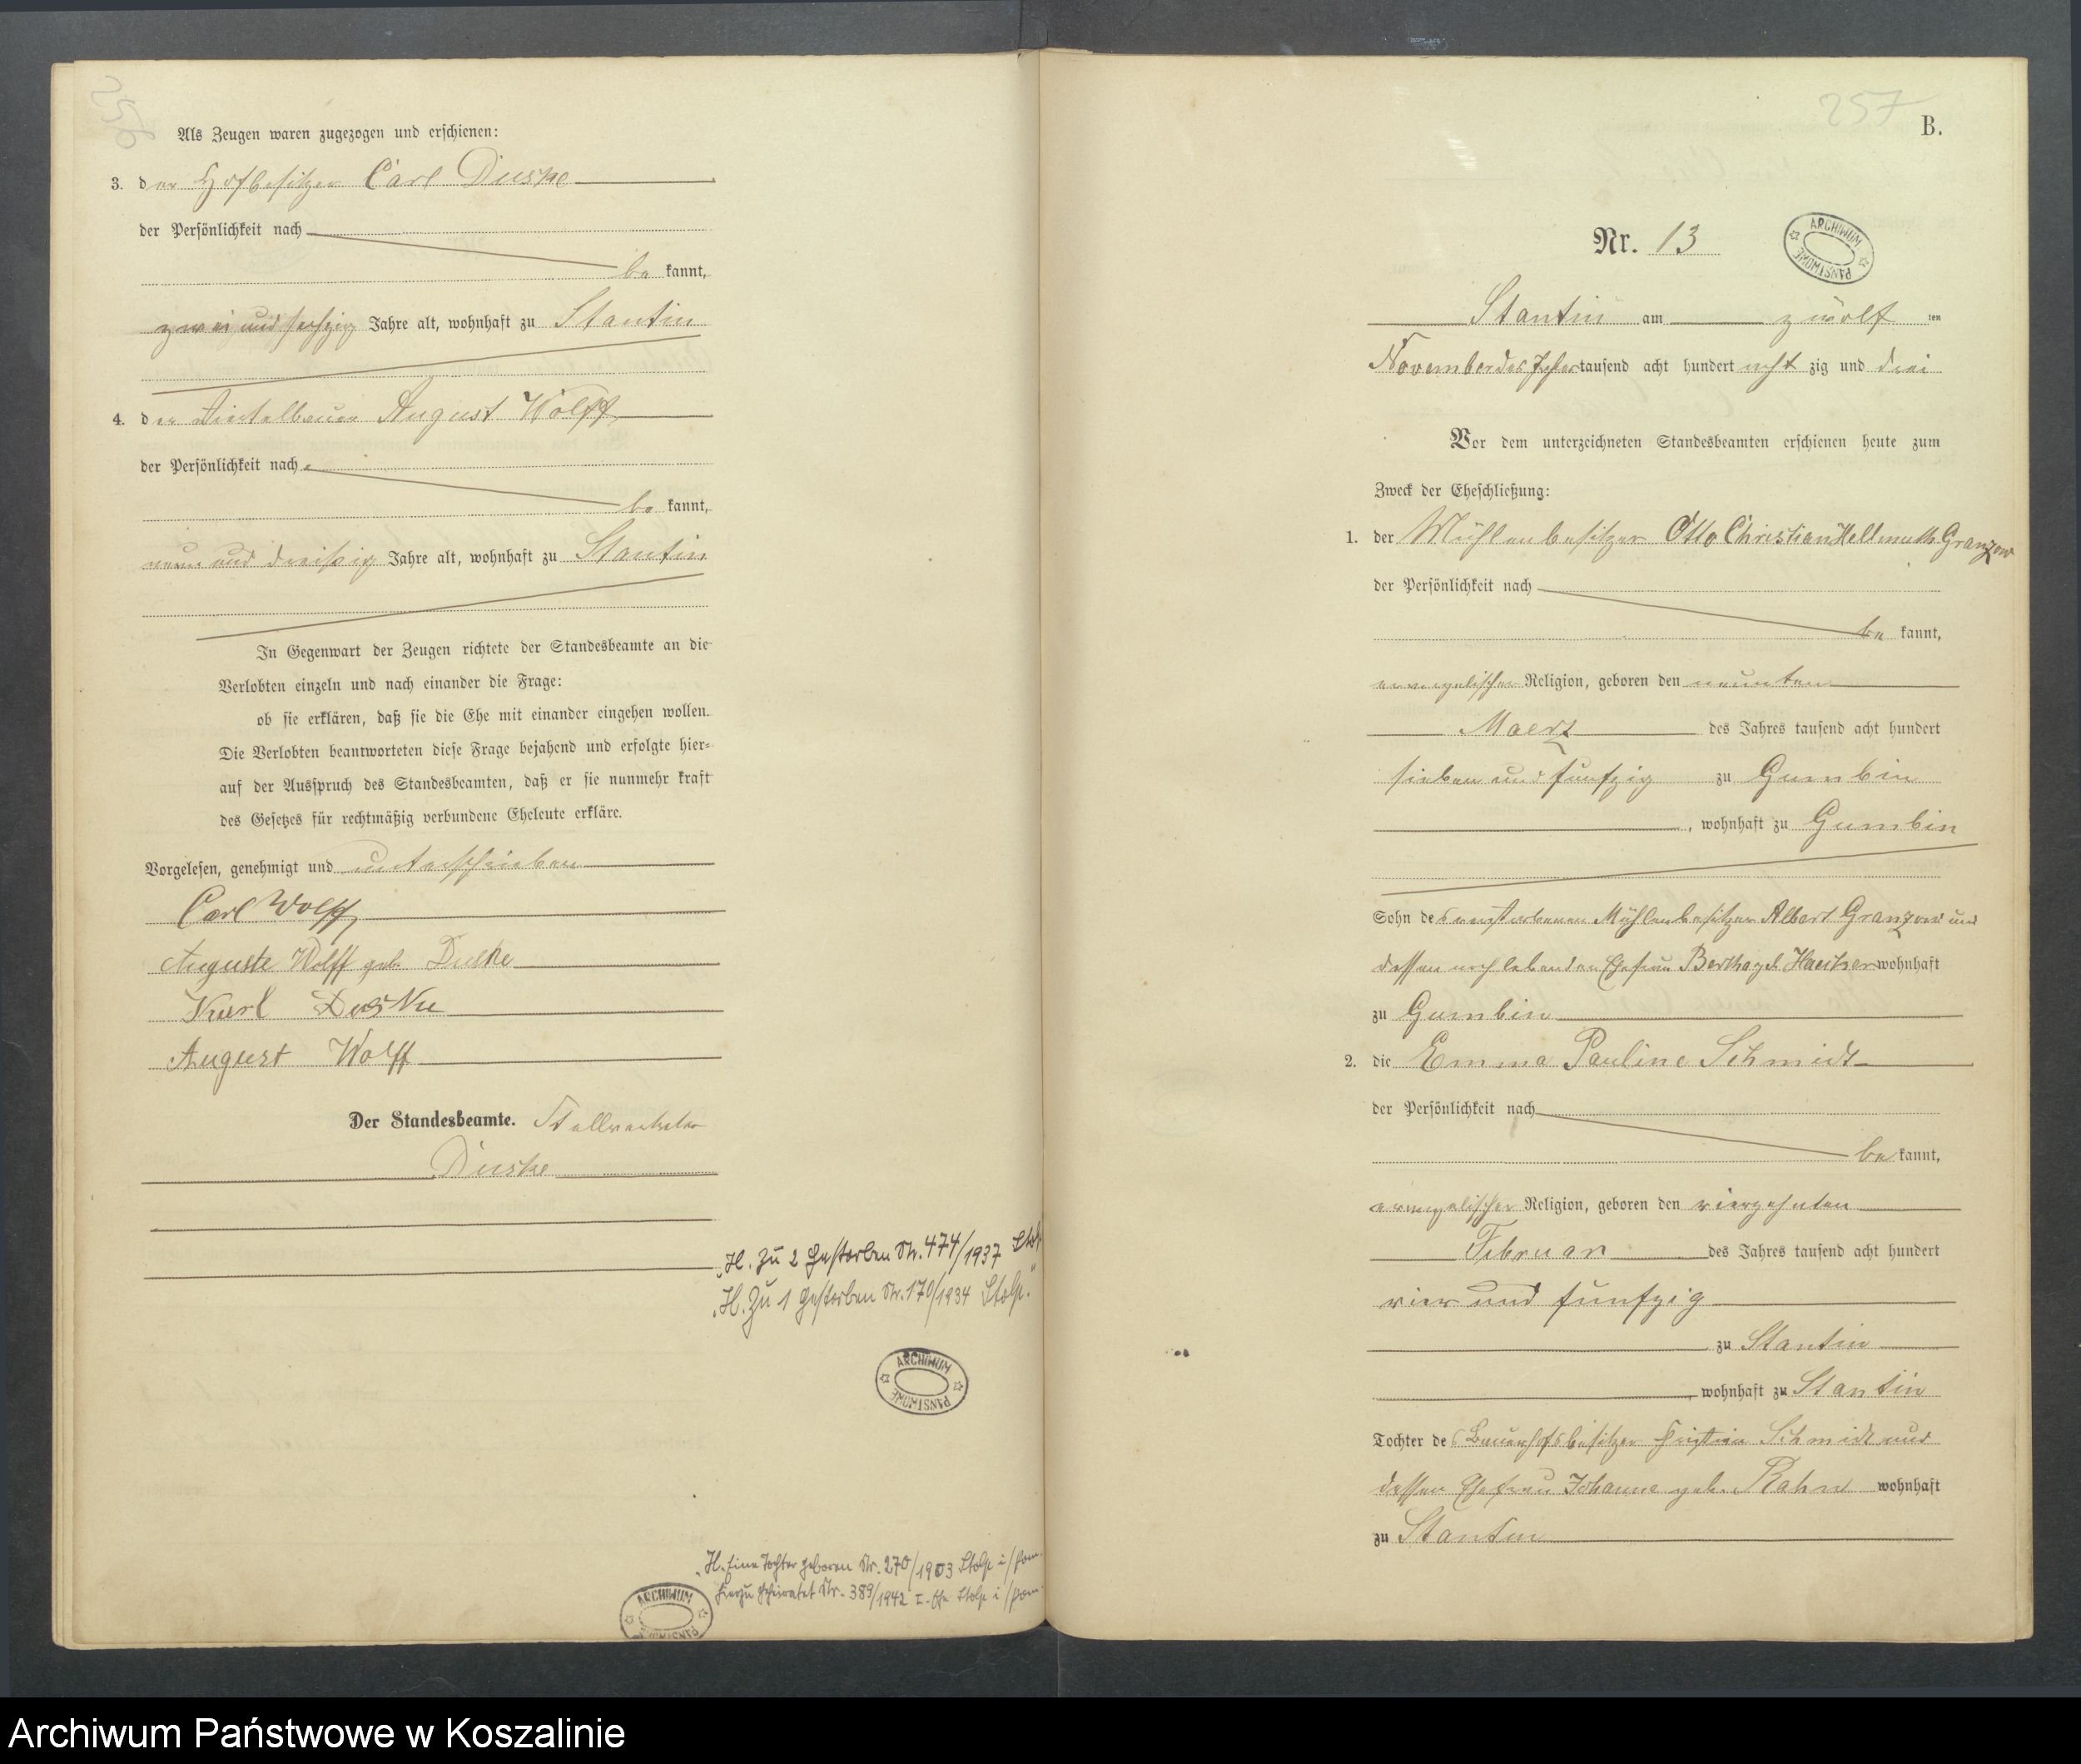 256
Als Zeugen waren zugezogen und erschienen:
3. der Hofbesitzer Carl Duske
der Persönlichkeit nach
be kannt,
zwei und sechzig Jahre alt, wohnhaft zu Stantin
4. der Viertelbauer August Wolff
der Persönlichkeit nach
be kannt,
neun und dreißig Jahre alt, wohnhaft zu Stantin
In Gegenwart der Zeugen richtete der Standesbeamte an die
Verlobten einzeln und nach einander die Frage:
ob sie erklären, daß sie die Ehe mit einander eingehen wollen.
Die Verlobten beantworteten diese Frage bejahend und erfolgte hier-
auf der Ausspruch des Standesbeamten, daß er sie nunmehr kraft
des Gesetzes für rechtmäßig verbundene Eheleute erkläre.
Vorgelesen, genehmigt und unterschrieben
Carl Wolff
Auguste Wolff geb. Duske
Karl Duske
August Wolff
Der Standesbeamte. Stellvertreter
Duske
"H. Zu 2 Gestorben Nr. 474/1937 Stolp
"H. Zu 1 gestorben Nr. 170/1934 Stolp."
ARCHIWUM PAŃSTWOWE
"H. Eine Tochter geboren Nr. 270/1903 Stolp i/Pom.
hierzu geheiratet Nr. 389/1942 I. Ehe Stolp i/Pom.
ARCHIWUM PAŃSTWOWE
257
B.
Nr. 13
ARCHIWUM PAŃSTWOWE
Stantin am zwölf ten
November des Jahres tausend acht hundert acht zig und drei
Vor dem unterzeichneten Standesbeamten erschienen heute zum
Zweck der Eheschließung:
1. der Mühlenbesitzer Otto Christian Hellmuth Granzow
der Persönlichkeit nach
be kannt,
evangelischer Religion, geboren den neunten
Maerz des Jahres tausend acht hundert
sieben und funfzig zu Gumbin
, wohnhaft zu Gumbin
Sohn des verstorbenen Mühlenbesitzer Albert Granzow und
dessen noch lebenden Ehefrau Bertha geb. wohnhaft
zu Gumbin
2. die Emma Pauline Schmidt
der Persönlichkeit nach
be kannt,
evangelischer Religion, geboren den vierzehnten
Februar des Jahres tausend acht hundert
vier und funfzig
zu Stantin
, wohnhaft zu Stantin
Tochter des Bauerhofsbesitzer Schmidt und
dessen Ehefrau Johanne geb. Rahn wohnhaft
zu Stantin
Archiwum Państwowe w Koszalinie